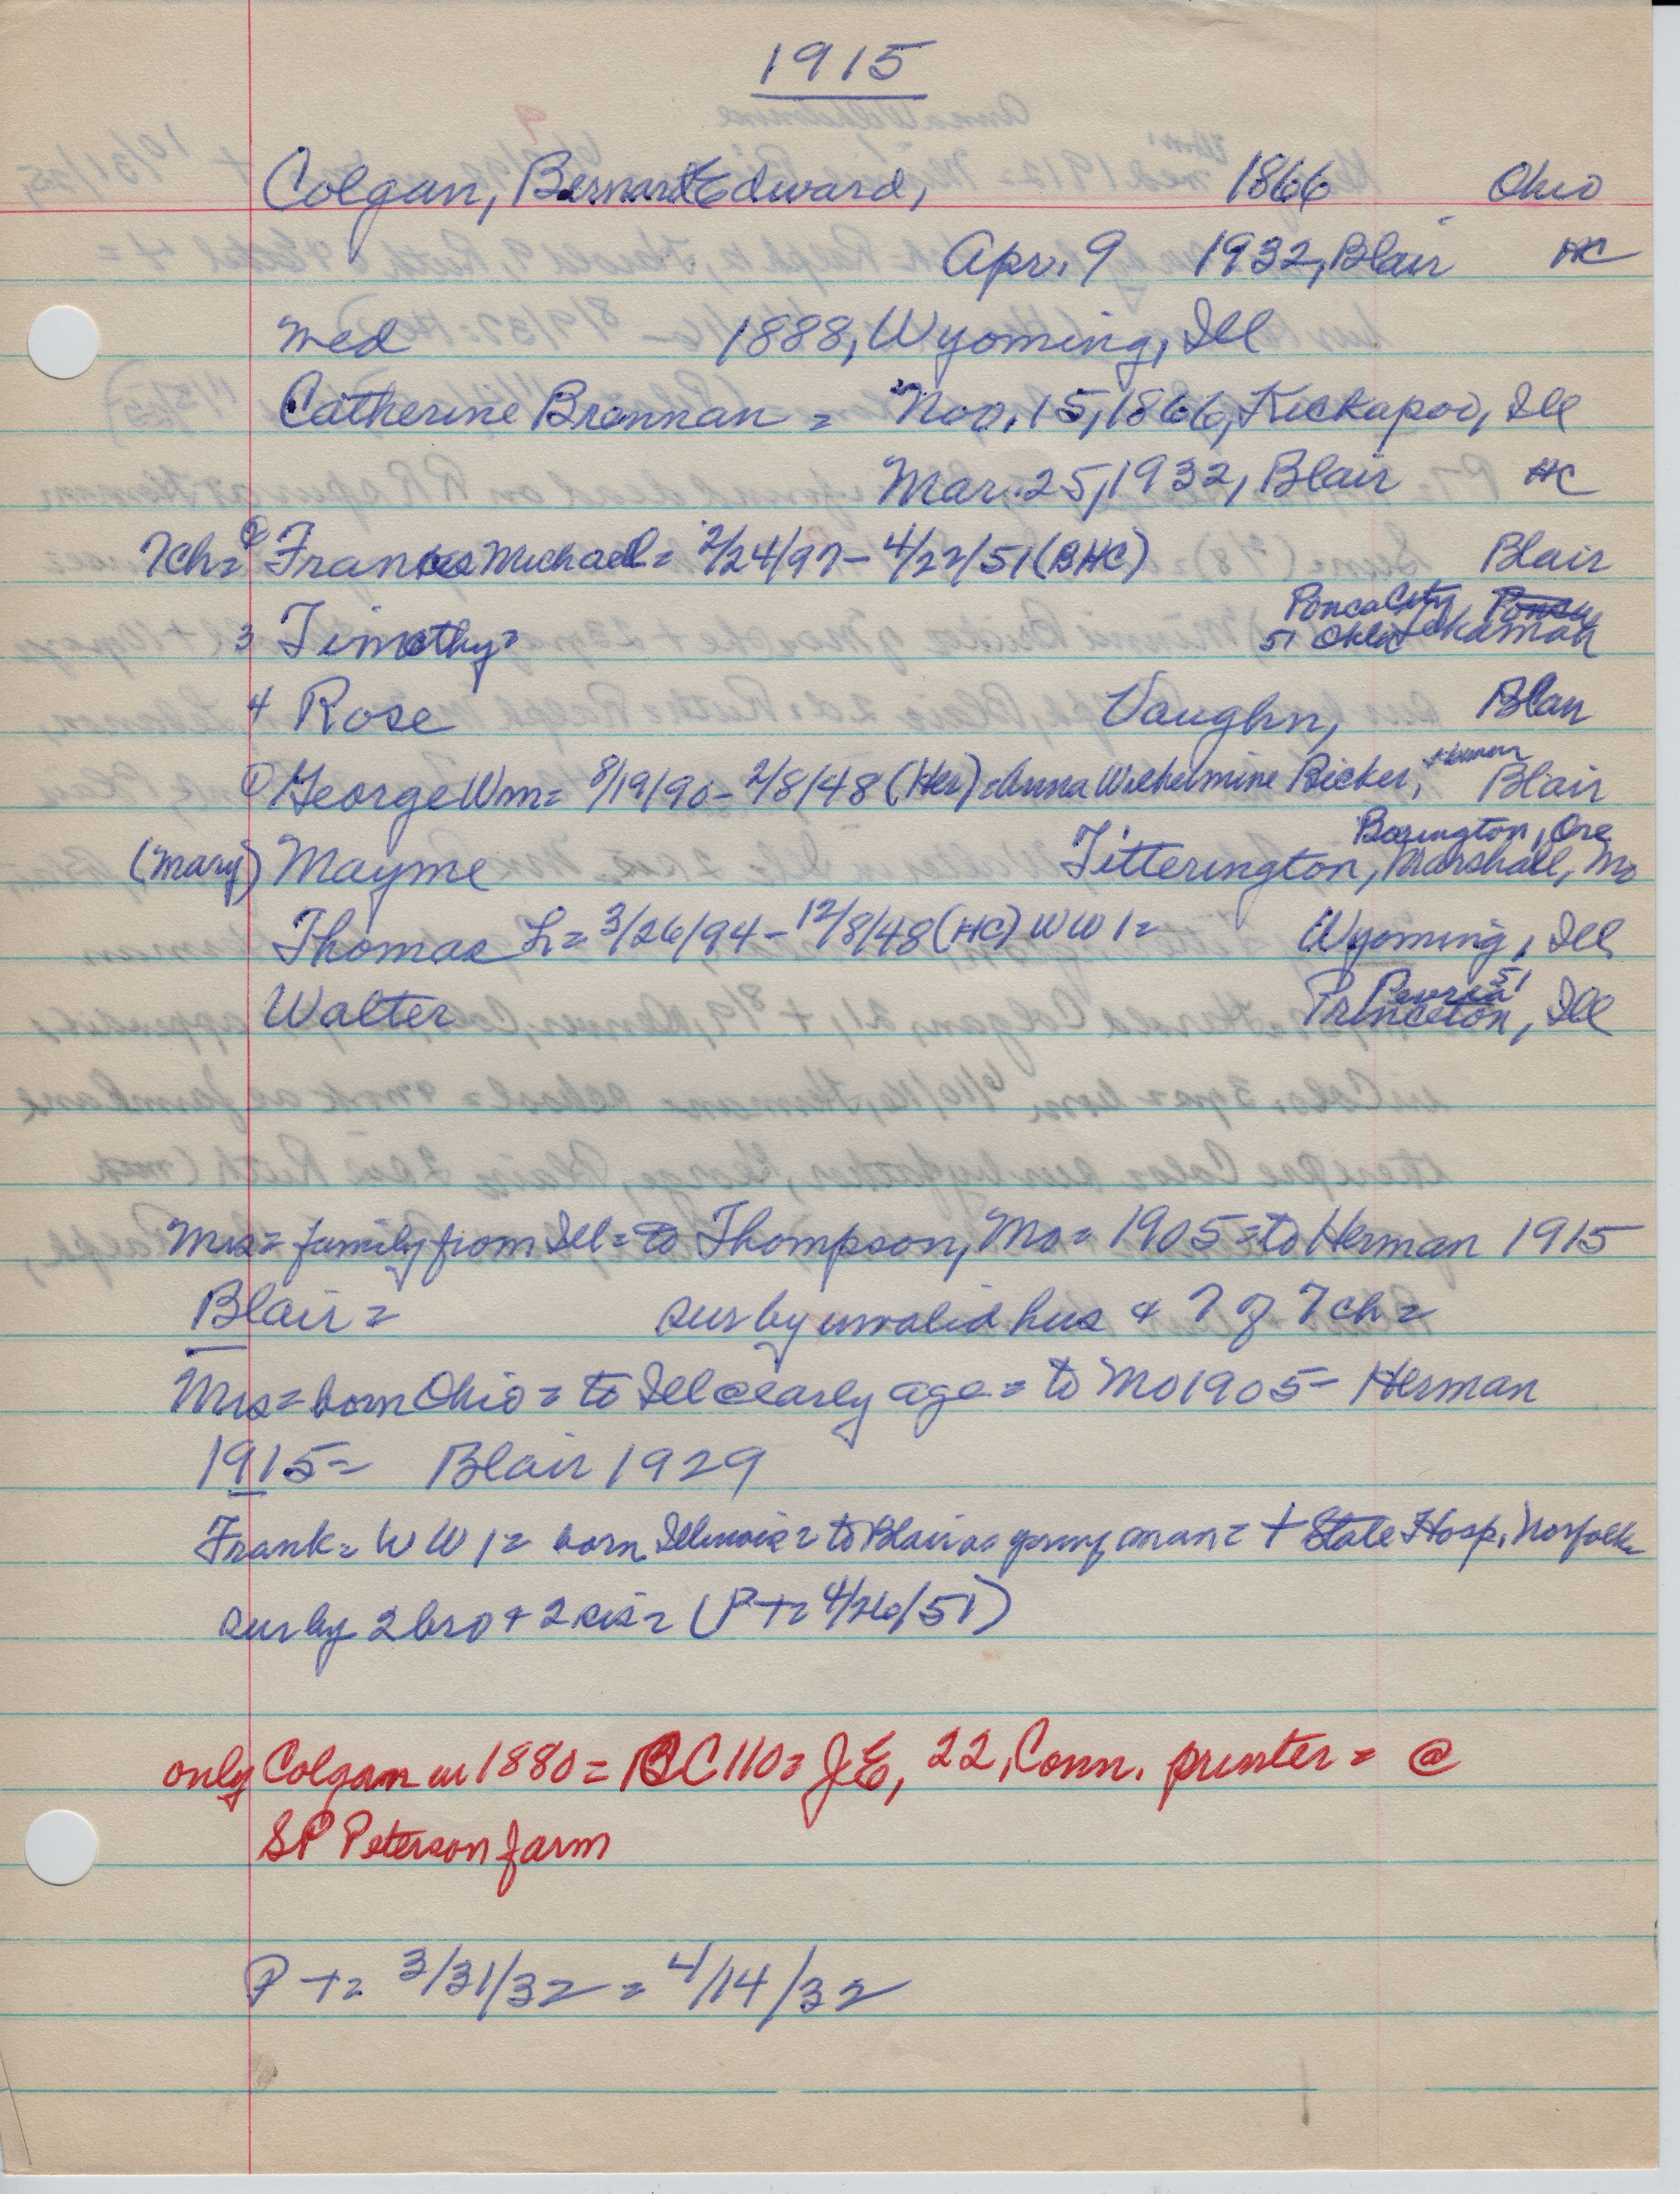 1915
Colgan, Bernard Edward, 1866 Ohio
Apr. 9 1932, Blair HC
med 1888, Wyoming, Ill
Catherine Brennan = Nov. 15, 1866, Kickapoo, Ill
Mar. 25, 1932, Blair HC
7ch = Francis Michael = 2/24/97 - 4/22/51 (BHC) Blair
Ponca City Ponca
3 Timothy = 51 Okla Tekamah
4 Rose Vaughn, Blair
Herman
① George Wm = 8/19/90 - 2/8/48 (Her) = Anna Wilhelmine Ricker, Blair
Barington, Ore
(Mary) Mayme Titterington, Marshall, Mo
Thomas L = 3/26/94 - 12/8/48 (HC) WW 1 = Wyoming, Ill
Peoria 51
Walter Princeton, Ill
Mrs = family from Ill = to Thompson, Mo = 1905 = to Herman 1915
Blair = sur by invalid hus & 7 of 7 ch =
Mrs = born Ohio = to Ill @ early age = to Mo 1905 - Herman
1915 = Blair 1929
Frank = WW 1 = born Illinois = to Blair as young man = + State Hosp. Norfolk
sur by 2 bro + 2 sis = (P + = 4/26/51)
only Colgan in 1880 = BC 110 = JE, 22, Conn. printer = @
SP Peterson farm
P + = 3/31/32 = 4/14/32